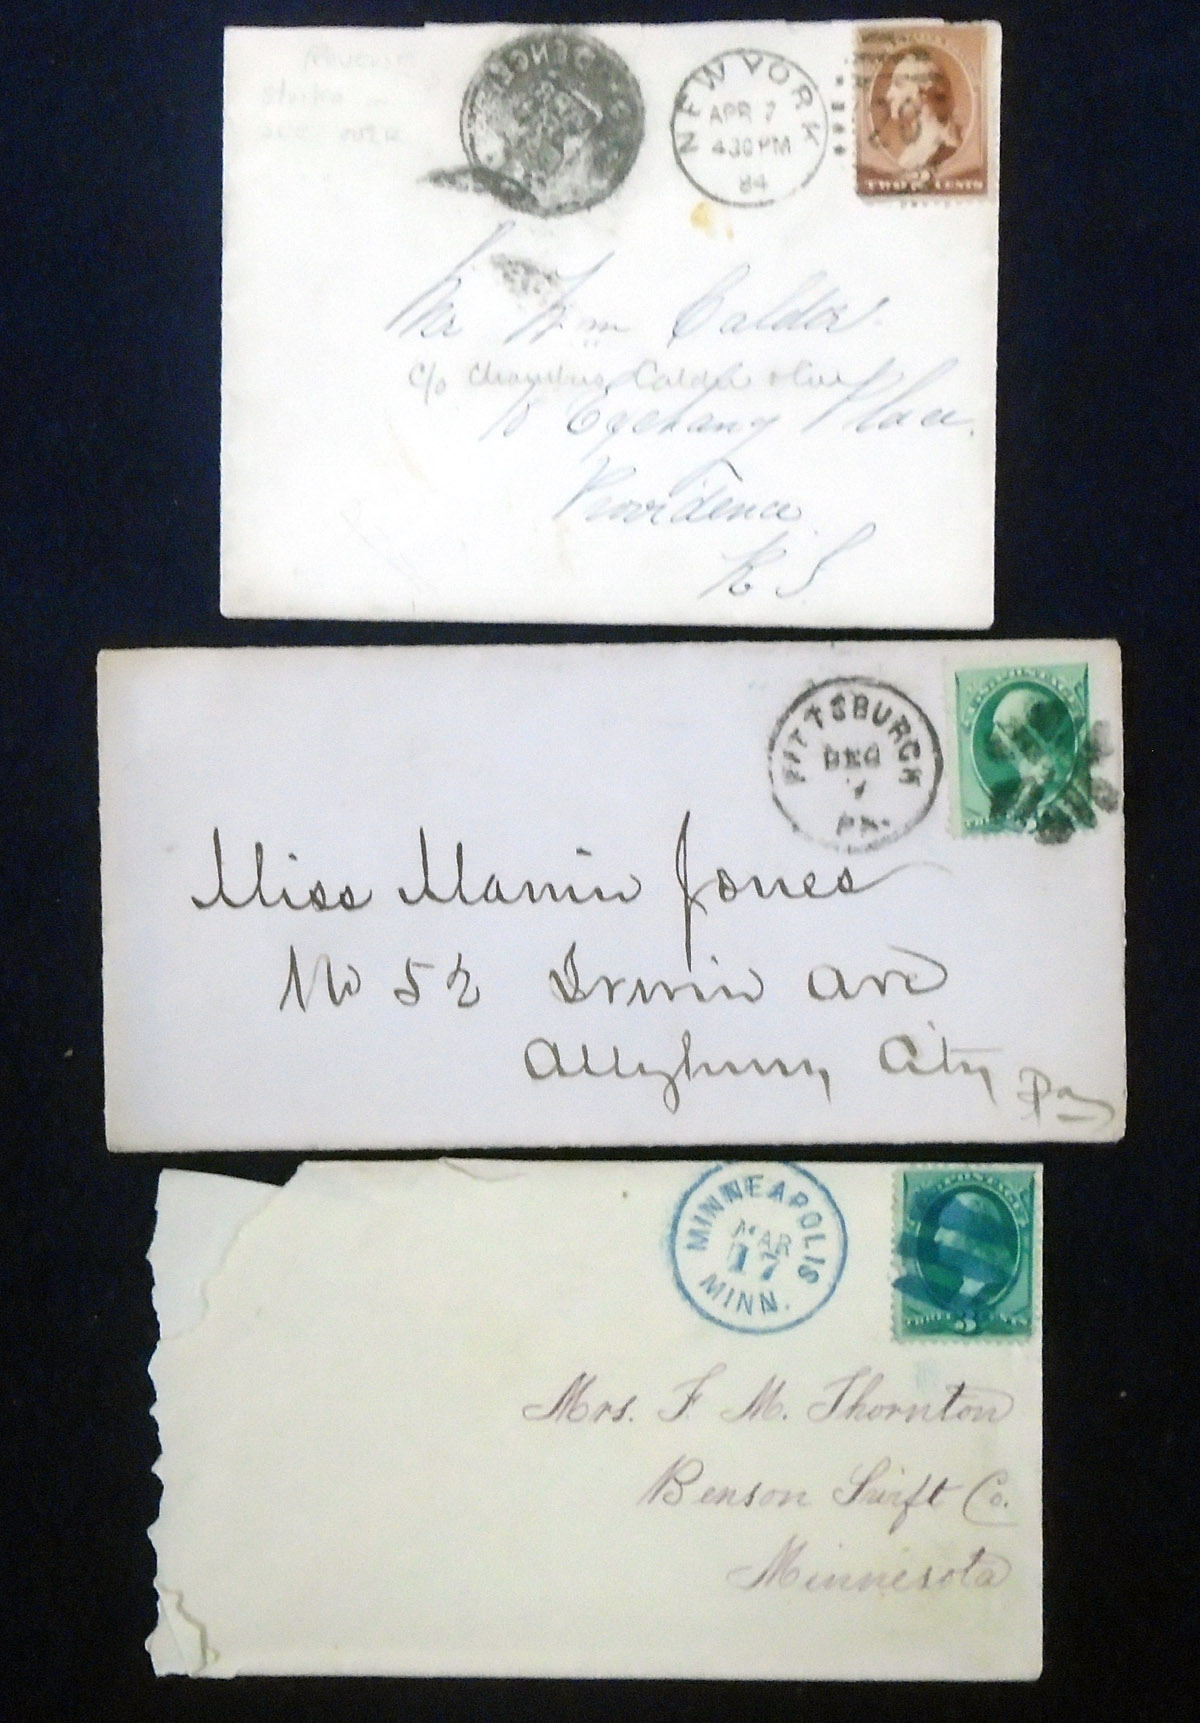 NEW YORK
APR 7
430 PM
84
TWO CENTS
Mr Wm Calder
c/o Calder
10 Exchang Place.
Providence
R I
PITTSBURGH
DEC
PA.
Miss Mamie Jones
No 52 Irwin Ave
Alleghany City Pa
MINNEAPOLIS
MAR
17
MINN.
3
THREE CENTS
Mrs. F. M. Thornton
Benson Swift Co.
Minnesota